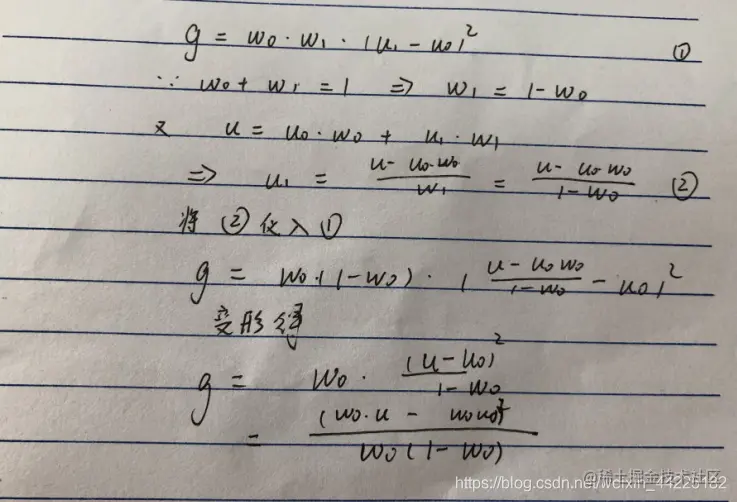 g = w₀ · w₁ · (u₁ - u₀)² ①
∵ w₀ + w₁ = 1 => w₁ = 1 - w₀
又 u = u₀ · w₀ + u₁ · w₁
=> u₁ = (u - u₀·w₀)/w₁ = (u - u₀·w₀)/(1 - w₀) ②
将 ② 代入 ①
g = w₀ · (1 - w₀) · ((u - u₀w₀)/(1 - w₀) - u₀)²
变形得
g = w₀ · (u - u₀)²/(1 - w₀)
= (w₀·u - w₀u₀)²/(w₀(1 - w₀))
@稀土掘金技术社区
https://blog.csdn.net/weixin_44225182